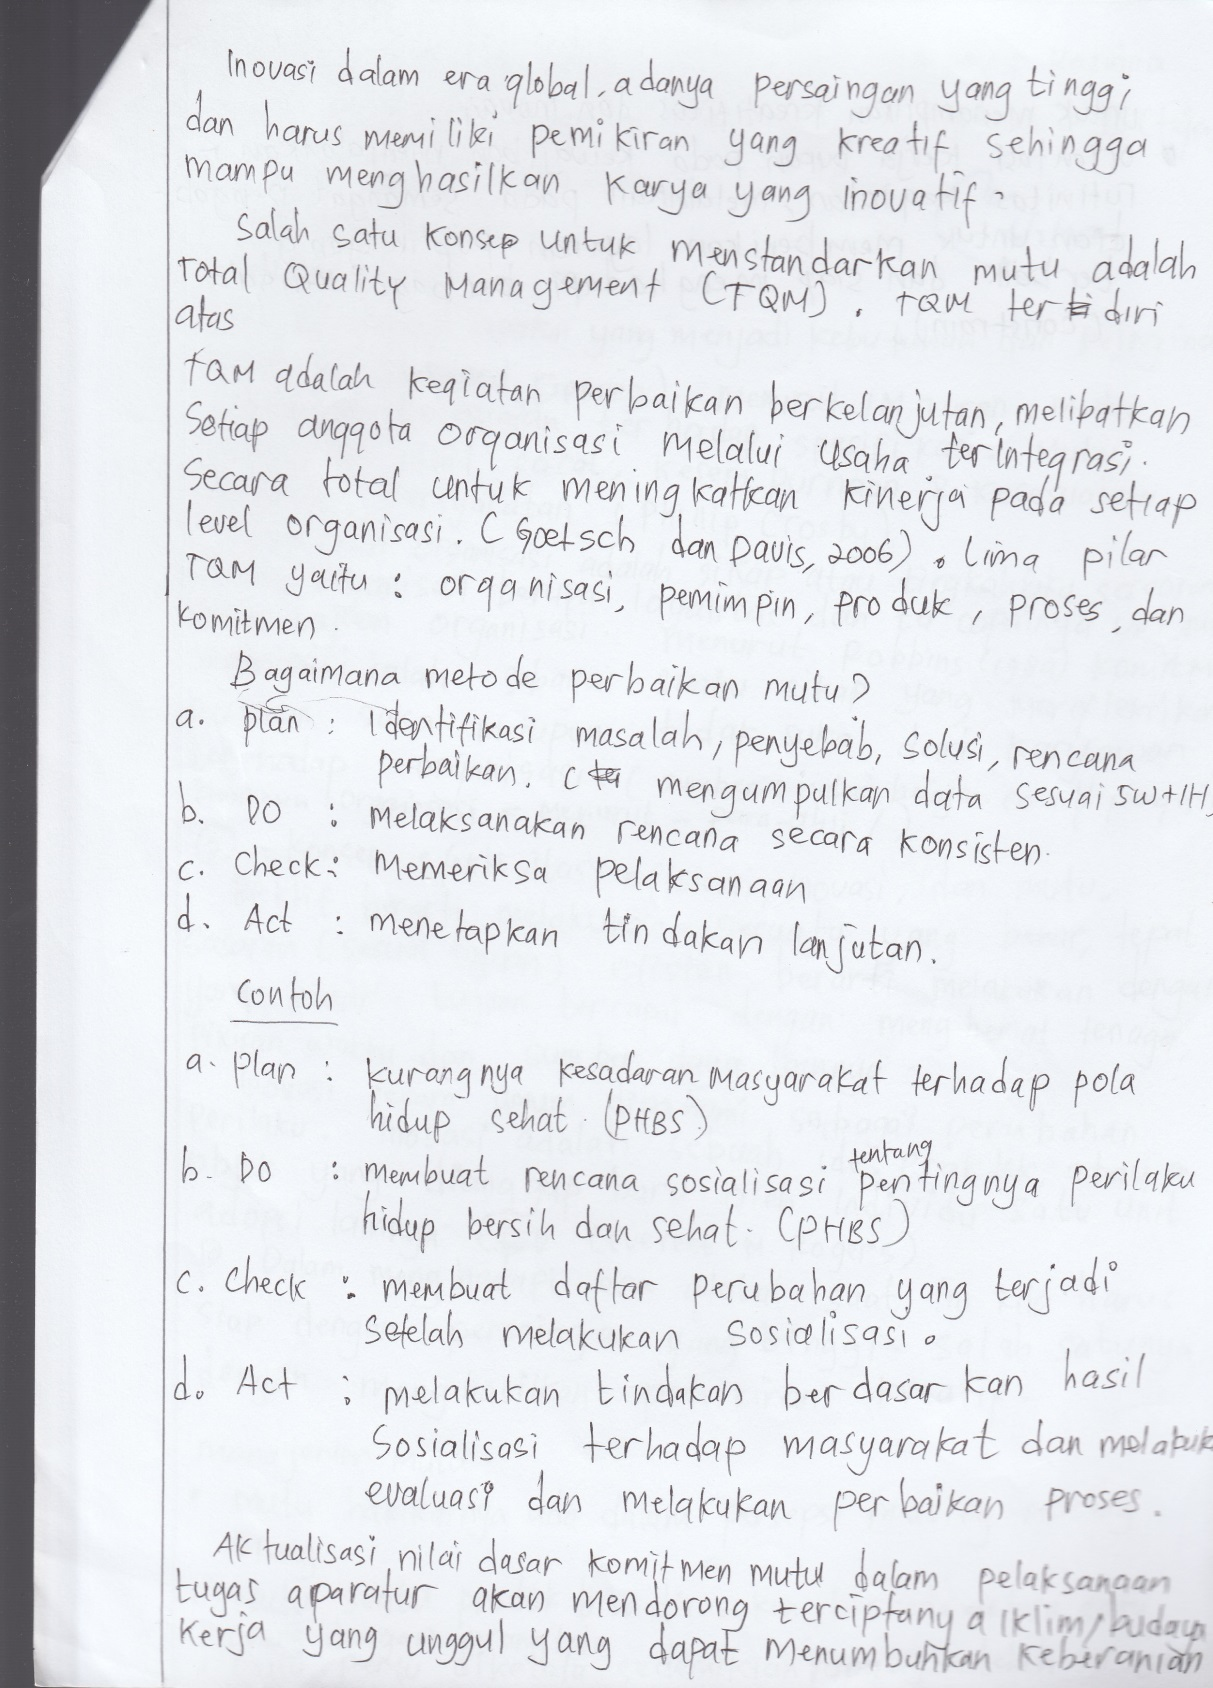 Inovasi dalam era global, adanya persaingan yang tinggi
dan harus memiliki pemikiran yang kreatif sehingga
mampu menghasilkan karya yang inovatif.
Salah satu konsep untuk menstandarkan mutu adalah
Total Quality Management (TQM). TQM terdiri
atas
TQM adalah kegiatan perbaikan berkelanjutan, melibatkan
Setiap anggota organisasi melalui usaha terintegrasi.
Secara total untuk meningkatkan kinerja pada setiap
level organisasi. (Goetsch dan Davis, 2006). Lima pilar
TQM yaitu : organisasi, pemimpin, produk, proses, dan
komitmen.
Bagaimana metode perbaikan mutu?
a. plan : Identifikasi masalah, penyebab, solusi, rencana
perbaikan. ( mengumpulkan data sesuai 5W+1H)
b. DO : melaksanakan rencana secara konsisten.
c. Check : Memeriksa pelaksanaan
d. Act : menetapkan tindakan lanjutan.
Contoh
a. plan : kurangnya kesadaran masyarakat terhadap pola
hidup sehat. (PHBS)
b. DO : membuat rencana sosialisasi tentang pentingnya perilaku
hidup bersih dan sehat. (PHBS)
c. Check : membuat daftar perubahan yang terjadi
setelah melakukan sosialisasi.
d. Act : melakukan tindakan berdasarkan hasil
Sosialisasi terhadap masyarakat dan melakuk
evaluasi dan melakukan perbaikan proses.
Aktualisasi nilai dasar komitmen mutu dalam pelaksanaan
tugas aparatur akan mendorong terciptanya iklim/budaya
kerja yang unggul yang dapat menumbuhkan keberanian